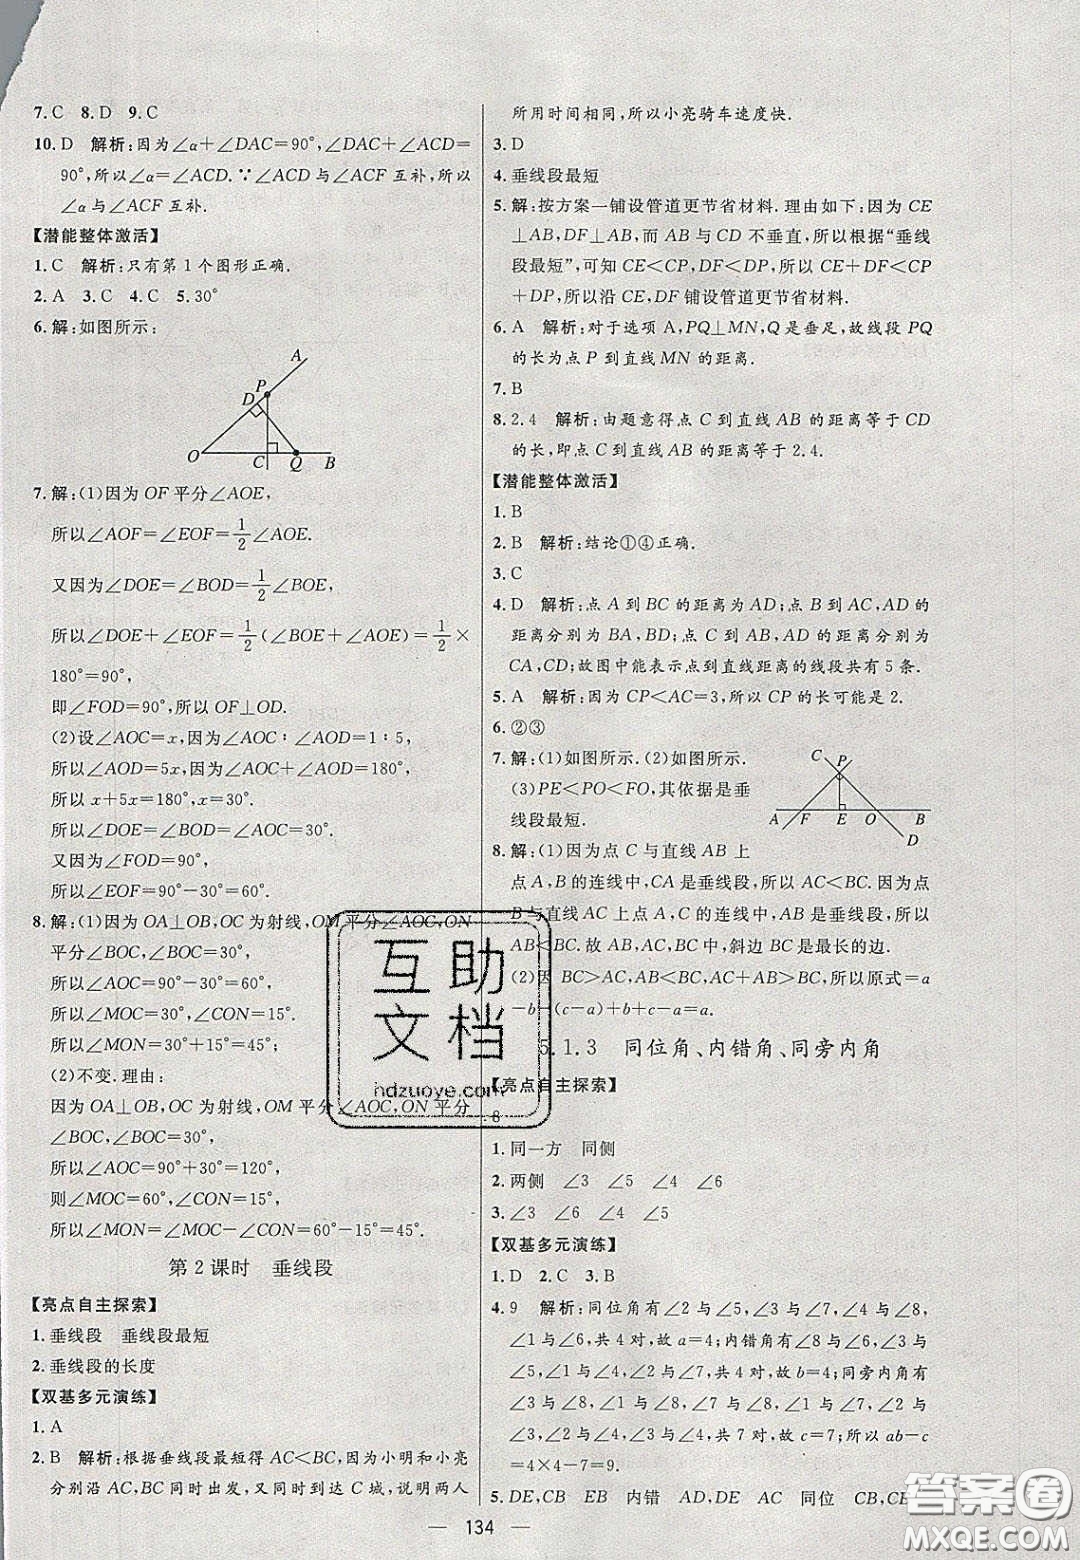 7. C 8. D 9. C
10. D 解析:因为∠α+∠DAC=90°,∠DAC+∠ACD=
90°,所以∠α=∠ACD.∵∠ACD与∠ACF互补,所以
∠α与∠ACF互补.
【潜能整体激活】
1. C 解析:只有第1个图形正确.
2. A 3. C 4. C 5. 30°
6. 解:如图所示:
A
P
D
O
C
Q
B
7. 解:(1)因为OF平分∠AOE,
所以∠AOF=∠EOF=1/2∠AOE.
又因为∠DOE=∠BOD=1/2∠BOE,
所以∠DOE+∠EOF=1/2(∠BOE+∠AOE)=1/2×
180°=90°,
即∠FOD=90°,所以OF⊥OD.
(2)设∠AOC=x,因为∠AOC∶∠AOD=1∶5,
所以∠AOD=5x,因为∠AOC+∠AOD=180°,
所以x+5x=180°,x=30°.
所以∠DOE=∠BOD=∠AOC=30°.
又因为∠FOD=90°,
所以∠EOF=90°-30°=60°.
8. 解:(1)因为OA⊥OB,OC为射线,OM平分∠AOC,ON
平分∠BOC,∠BOC=30°,
所以∠AOC=90°-30°=60°.
所以∠MOC=30°,∠CON=15°.
所以∠MON=30°+15°=45°.
(2)不变.理由:
因为OA⊥OB,OC为射线,OM平分∠AOC,ON平分
∠BOC,∠BOC=30°,
所以∠AOC=90°+30°=120°,
则∠MOC=60°,∠CON=15°,
所以∠MON=∠MOC-∠CON=60°-15°=45°.
第2课时 垂线段
【亮点自主探索】
1. 垂线段 垂线段最短
2. 垂线段的长度
【双基多元演练】
1. A
2. B 解析:根据垂线段最短得AC<BC,因为小明和小亮
分别沿AC,BC同时出发,又同时到达C城,说明两人
所用时间相同,所以小亮骑车速度快.
3. D
4. 垂线段最短
5. 解:按方案一铺设管道更节省材料.理由如下:因为CE
⊥AB,DF⊥AB,而AB与CD不垂直,所以根据“垂线
段最短”,可知CE<CP,DF<DP,所以CE+DF<CP
+DP,所以沿CE,DF铺设管道更节省材料.
6. A 解析:对于选项A,PQ⊥MN,Q是垂足,故线段PQ
的长为点P到直线MN的距离.
7. B
8. 2.4 解析:由题意得点C到直线AB的距离等于CD
的长,即点C到直线AB的距离等于2.4.
【潜能整体激活】
1. B
2. B 解析:结论①④正确.
3. C
4. D 解析:点A到BC的距离为AD;点B到AC,AD的
距离分别为BA,BD;点C到AB,AD的距离分别为
CA,CD;故图中能表示点到直线距离的线段共有5条.
5. A 解析:因为CP<AC=3,所以CP的长可能是2.
6. ②③
7. 解:(1)如图所示.(2)如图所示.
(3)PE<PO<FO,其依据是垂
线段最短.
C P
A F E O B
D
8. 解:(1)因为点C与直线AB上
点A,B的连线中,CA是垂线段,所以AC<BC.因为点
B与直线AC上点A,C的连线中,AB是垂线段,所以
AB<BC.故AB,AC,BC中,斜边BC是最长的边.
(2)因 BC>AC,AB<BC,AC+AB>BC,所以原式=a
-b-(c-a)+b+c-a=a.
5.1.3 同位角、内错角、同旁内角
【亮点自主探索】
8
1. 同一方 同侧
2. 两侧 ∠3 ∠5 ∠4 ∠6
3. ∠3 ∠6 ∠4 ∠5
【双基多元演练】
1. D 2. C 3. B
4. 9 解析:同位角有∠2与∠5,∠3与∠7,∠4与∠8,
∠1与∠6,共4对,故a=4;内错角有∠8与∠6,∠4与
∠5,∠1与∠7,∠4与∠6,共4对,故b=4;同旁内角有
∠2与∠3,∠6与∠7,∠1与∠4,∠4与∠5,∠5与∠6,
∠8与∠5,∠1与∠8,共7对,故c=7;所以ab-c
=4×4-7=9.
5. DE,CB EB 内错 AD,DE AC 同位 CB,CE
134
互助
文档
hdzuoye.com
答案圈
MXQE.COM